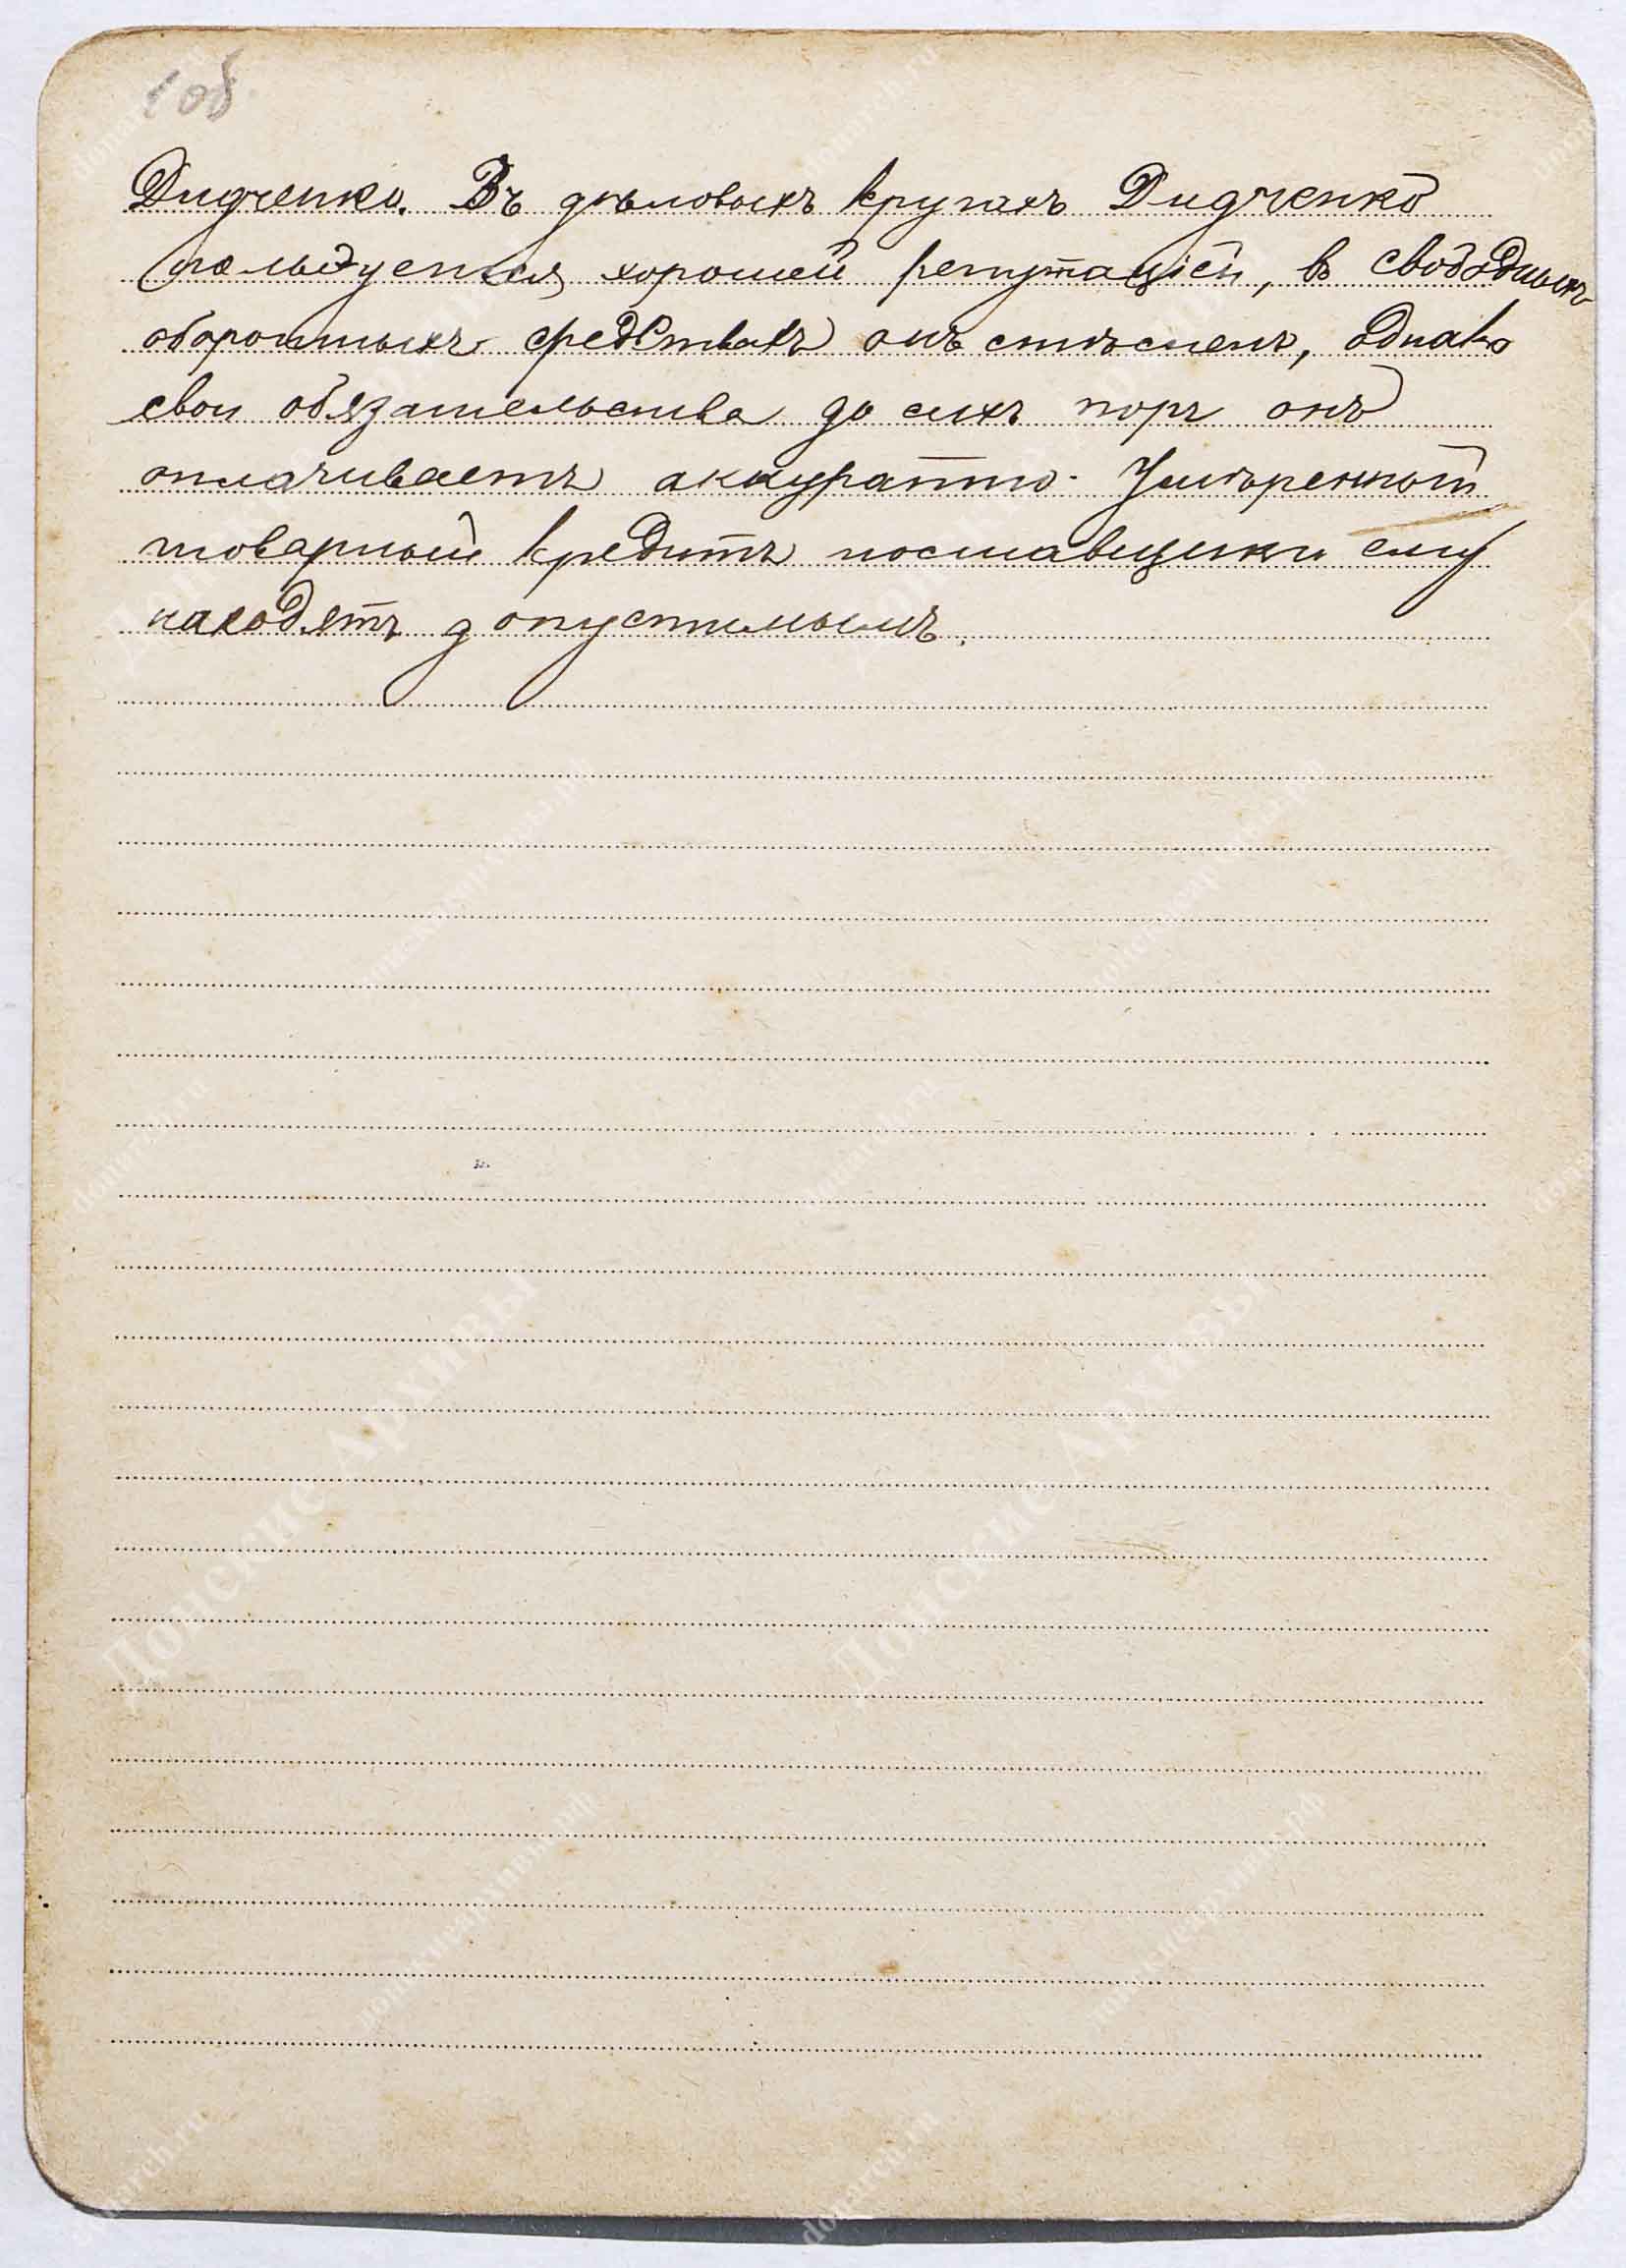 1 об.
Дидченко. Въ дѣловыхъ кругахъ Дидченко
пользуется хорошей репутацiей, въ свободныхъ
оборотныхъ средствахъ онъ стѣсненъ, однако
свои обязательства до сихъ поръ онъ
оплачиваетъ аккуратно. Умѣренный
товарный кредитъ поставщики ему
находятъ допустимымъ.